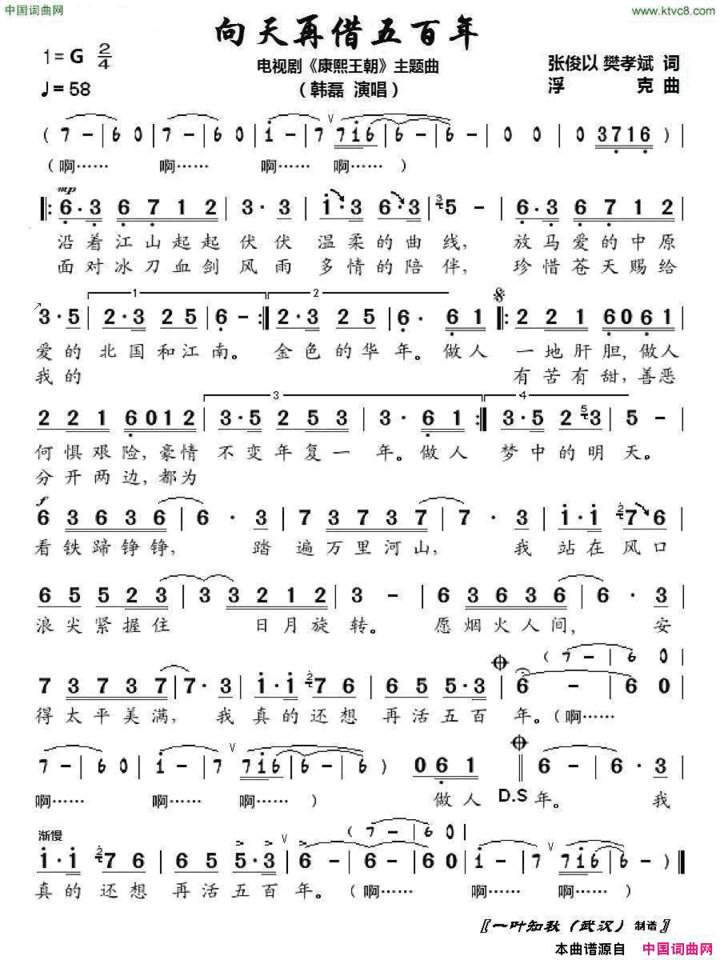 中国词曲网
www.ktvc8.com
向天再借五百年
1=G 2/4
电视剧《康熙王朝》主题曲
张俊以 樊孝斌 词
♩=58
（韩磊 演唱）
浮 克 曲
( 7 - | 6 0 | i - | 7 7i6 | 6 - | 6 - | 0 0 | 0 3716 ) |
(啊…… 啊…… 啊…… 啊…… )
mp
‖: 6·3 6 7 1 2 | 3·3 | i·3 6·3 | 3 5 - | 6·3 6 7 1 2 |
沿着江山起起伏伏温柔的曲线，放马爱的中原
面对冰刀血剑风雨多情的陪伴，珍惜苍天赐给
1 2
3·5 | 2·3 2 5 | 6 - :‖ 2·3 2 5 | 6· 6 1 ‖: 2 2 1 6 0 6 1 |
爱的北国和江南。金色的华年。做人一地肝胆，做人
我的 有苦有甜，善恶
3 4
2 2 1 6 0 1 2 | 3·5 2 5 3 | 3· 6 1 :‖ 3·5 2 5 3 | 5 - |
何惧艰险，豪情不变年复一年。做人梦中的明天。
分开两边，都为
f
6 3 6 3 6 | 6 · 3 | 7 3 7 3 7 | 7 · 3 | i·i 2 7 6 |
看铁蹄铮铮，踏遍万里河山，我站在风口
6 5 5 2 3 | 3 3 2 1 2 | 3 - | 6 3 6 3 6 | 6 · 3 |
浪尖紧握住日月旋转。愿烟火人间，安
( 7 - | 6 0 |
7 3 7 3 7 | 7·3 | i·i 2 7 6 | 6 5 5·3 | 6 - | 6 0 |
得太平美满，我真的还想再活五百年。(啊……
7 - | 6 0 | i - | 7 - | 7 7i6 | 6 - | 6 - ) | 0 6 1 ‖ 6 - | 6· 3 |
啊…… 啊…… 啊…… ) 做人 D.S 年。 我
渐慢
( 7 - | 6 0 |
i·i 2 7 6 | 6 5 5·3 | 6 - | 6 0 | i - | 7 - | 7 7i6 | 6 - ) ‖
真的还想再活五百年。(啊…… 啊…… 啊…… )
〖一叶知秋（武汉）制谱〗
本曲谱源自 中国词曲网